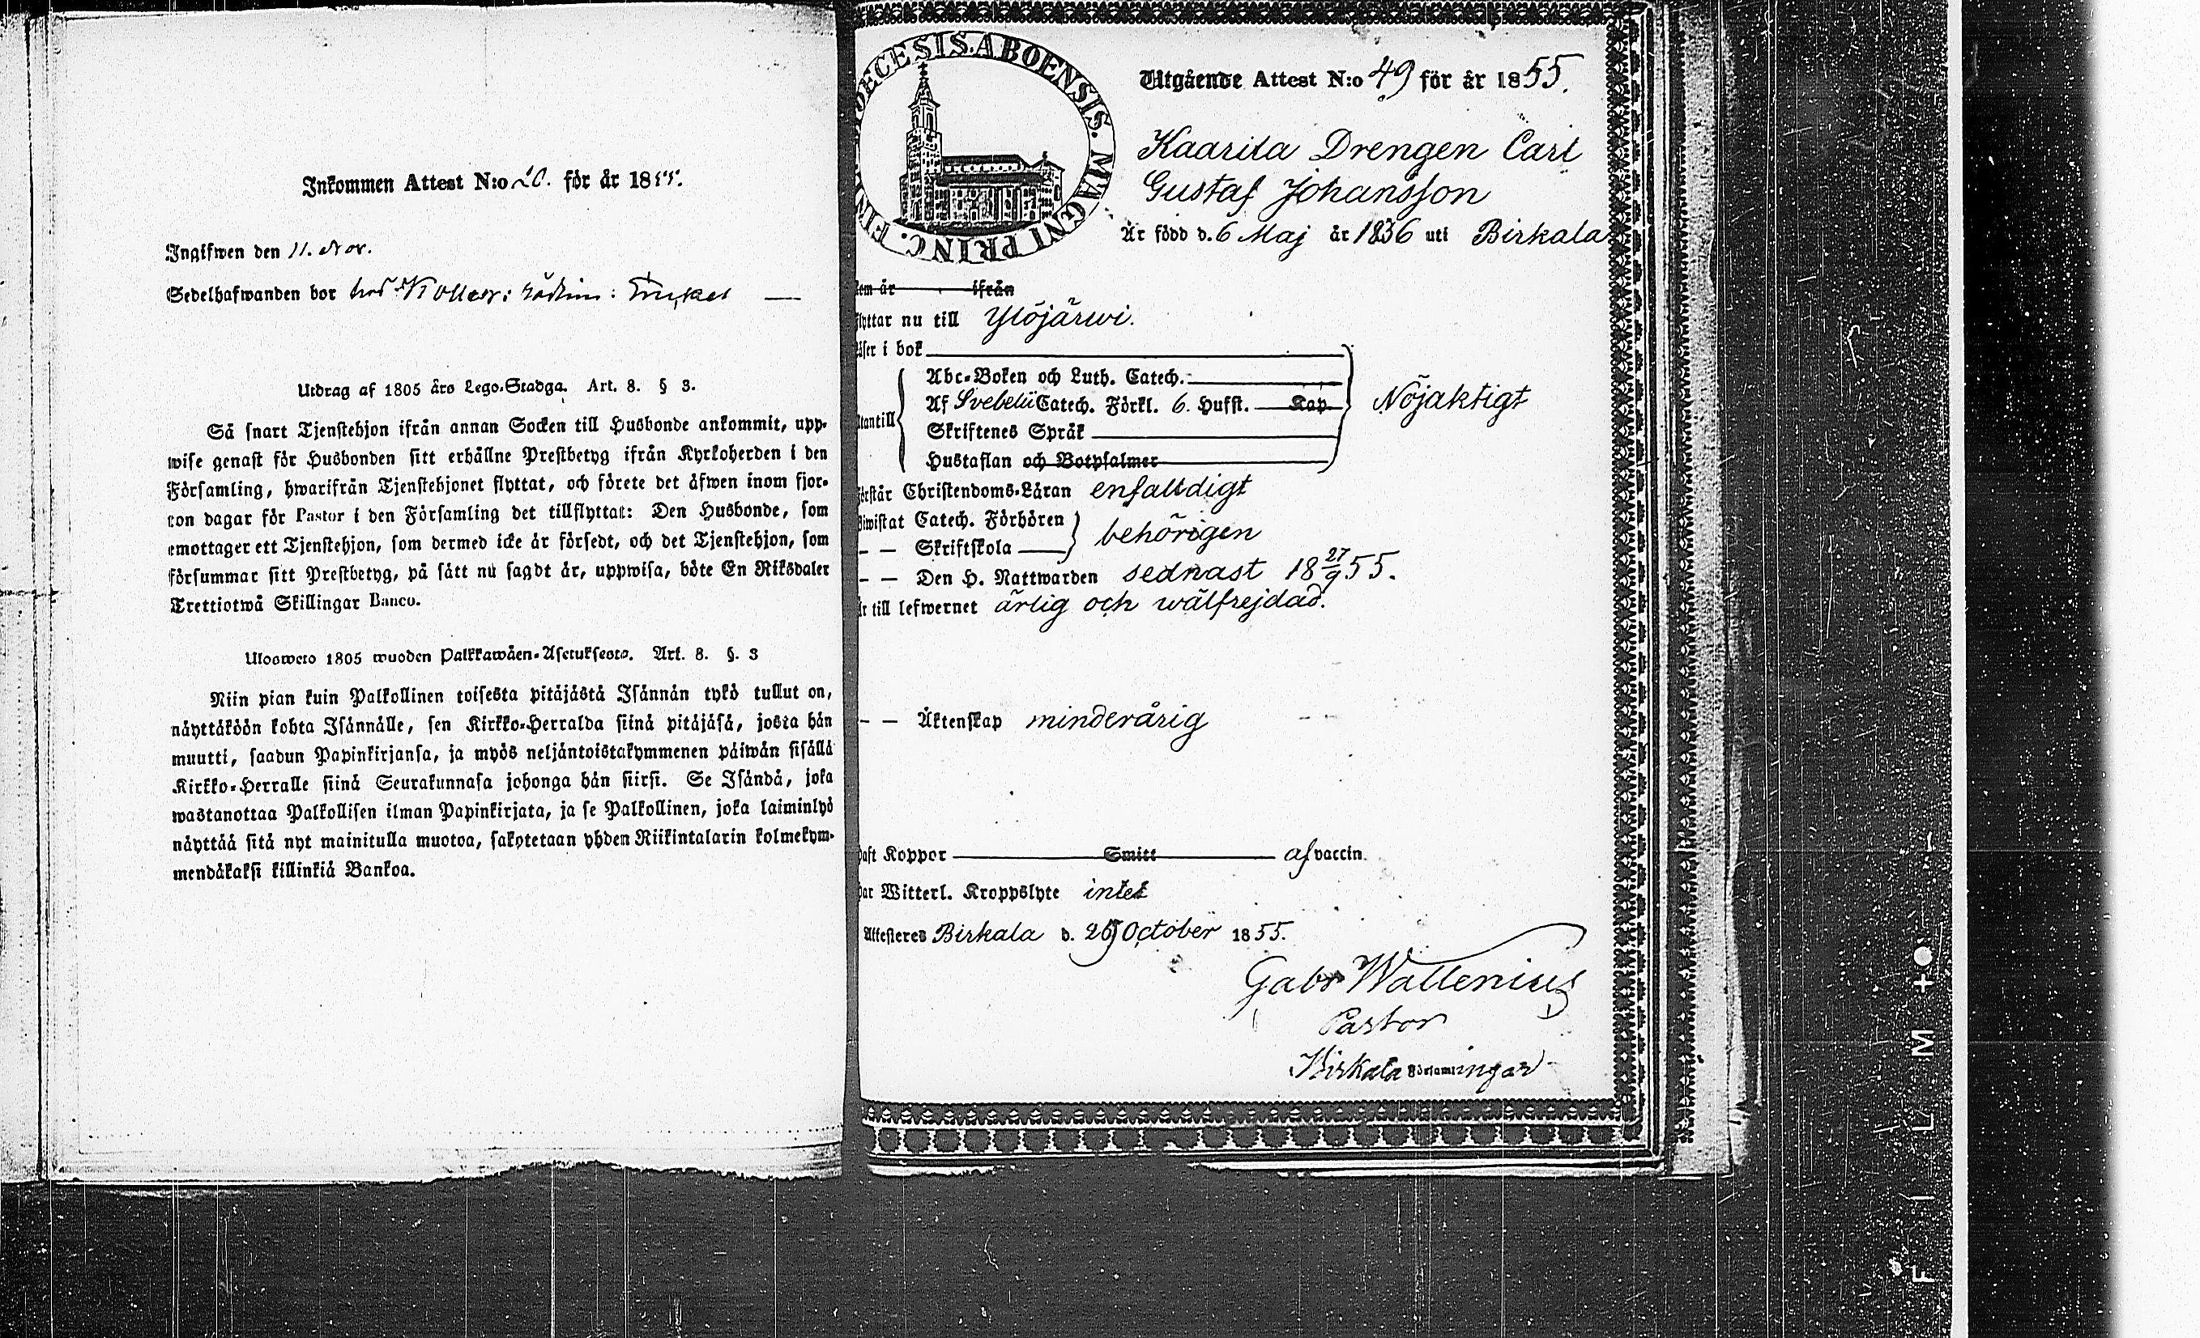 Inkommen Attest N:o 20. för år 1855.
Ingifwen den 11. Nov.
Sedelhafwanden bor hos
Utdrag af 1805 års Lego-Stadga. Art. 8. § 3.
Så snart Tjenstehjon ifrån annan Socken till Husbonde ankommit, upp-
wise genast för Husbonden sitt erhållne Prestbetyg ifrån Kyrkoherden i den
Församling, hwarifrån Tjenstehjonet flyttat, och förete det äfwen inom fjor-
ton dagar för Pastor i den Församling det tillflyttat: Den Husbonde, som
emottager ett Tjenstehjon, som dermed icke är försedt, och det Tjenstehjon, som
försummar sitt Prestbetyg, på sätt nu sagdt är, uppwisa, böte En Riksdaler
Trettiotwå Skillingar Banco.
Ulosweto 1805 wuoden Palkkawäen-Asetuksesta. Art. 8. §. 3
Niin pian kuin Palkollinen toisesta pitäjästä Isännän tykö tullut on,
näyttäköön kohta Isännälle, sen Kirkko-Herralda siinä pitäjäsä, josta hän
muutti, saadun Papinkirjansa, ja myös neljäntoistakymmenen päiwän sisällä
Kirkko-Herralle siinä Seurakunnasa johonga hän siirsi. Se Isändä, joka
wastanottaa Palkollisen ilman Papinkirjata, ja se Palkollinen, joka laiminlyö
näyttää sitä nyt mainitulla muotoa, sakotetaan yhden Riikintalarin kolmekym-
mendäkaksi killinkiä Bankoa.
DIOECESIS ABOENSIS. MAGNI PRINC. FIN
Utgående Attest N:o 49 för år 1855.
Kaarila Drengen Carl
Gustaf Johansson
Är född d. 6 Maj år 1836 uti Birkala
em är ifrån
lyttar nu till Ylöjärwi.
äser i bok
Abc-Boken och Luth. Catech.
Af Svebelii Catech. Förkl. 6. Hufst. Kap.
utantill
Skriftenes Språk
Hustaflan och Botpsalmer
Nöjaktigt
örstår Christendoms-Läran enfaldigt
biwistat Catech. Förhören
— — Skriftskola
behörigen
— — Den H. Nattwarden sednast 18 27/9 55.
är till lefwernet ärlig och wälfrejdad.
— — Äktenskap minderårig
haft Koppor Smitt af vaccin.
har Witterl. Kroppslyte intet
Attesteres Birkala d. 26 October 1855.
Gabr Wallenius
Pastor
Birkala Församlingar
F I L M